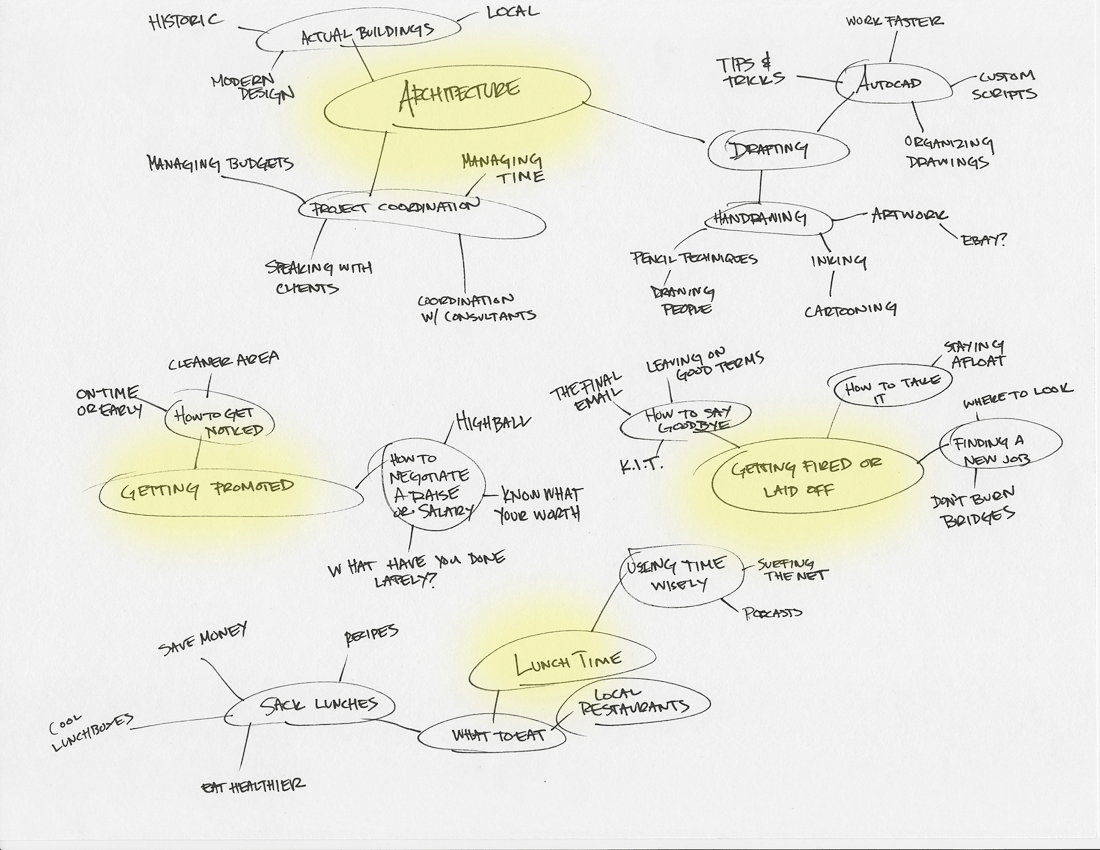 HISTORIC
LOCAL
ACTUAL BUILDINGS
MODERN
DESIGN
ARCHITECTURE
MANAGING BUDGETS
MANAGING
TIME
PROJECT COORDINATION
SPEAKING WITH
CLIENTS
COORDINATION
W/ CONSULTANTS
WORK FASTER
TIPS &
TRICKS
AUTOCAD
CUSTOM
SCRIPTS
ORGANIZING
DRAWINGS
DRAFTING
HANDRAWING
ARTWORK
EBAY?
PENCIL TECHNIQUES
DRAWING
PEOPLE
INKING
CARTOONING
CLEANER AREA
ON-TIME
OR EARLY
HOW TO GET
NOTICED
GETTING PROMOTED
HIGHBALL
HOW TO
NEGOTIATE
A RAISE
OR SALARY
KNOW WHAT
YOUR WORTH
WHAT HAVE YOU DONE
LATELY?
LEAVING ON
GOOD TERMS
THE FINAL
EMAIL
HOW TO SAY
GOODBYE
K.I.T.
STAYING
AFLOAT
HOW TO TAKE
IT
WHERE TO LOOK
FINDING A
NEW JOB
DON'T BURN
BRIDGES
GETTING FIRED OR
LAID OFF
USING TIME
WISELY
SURFING
THE NET
PODCASTS
LUNCH TIME
LOCAL
RESTAURANTS
WHAT TO EAT
SAVE MONEY
RECIPES
SACK LUNCHES
COOL
LUNCHBOXES
EAT HEALTHIER